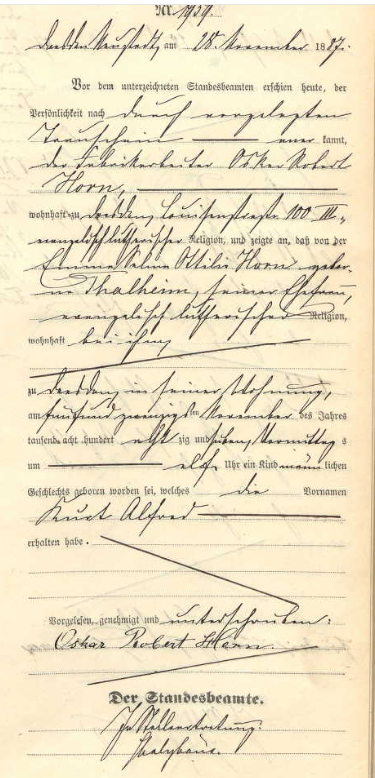 Nr. 1939.
Dresden Neustadt, am 28. November 1887.
Vor dem unterzeichneten Standesbeamten erschien heute, der
Persönlichkeit nach durch vorgelegten
Trauschein aner kannt,
der Fabrikarbeiter Oskar Robert
Horn,
wohnhaft zu Dresden, Louisenstraße 100 III.,
evangelisch lutherischer Religion, und zeigte an, daß von der
Emma Selma Ottilie Horn gebor-
ne Thalheim, seiner Ehefrau,
evangelisch lutherischer Religion,
wohnhaft bei ihm,
zu Dresden in seiner Wohnung,
am fünfundzwanzigsten November des Jahres
tausend acht hundert acht zig und sieben, Vormittag s
um elf Uhr ein Kind männ lichen
Geschlechts geboren worden sei, welches die Vornamen
Kurt Alfred
erhalten habe.
Vorgelesen, genehmigt und unterschrieben:
Oskar Robert Horn.
Der Standesbeamte.
In Stellvertretung.